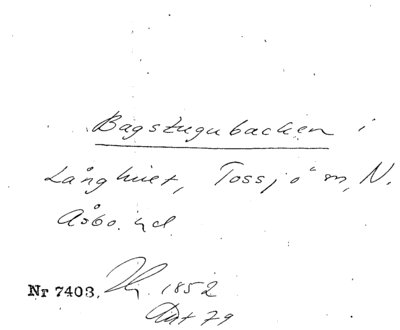 Bagstugubacken i
Långhult, Tossjö sn, N.
Åsbo hd.
Nr 7403. 1852
Akt 79